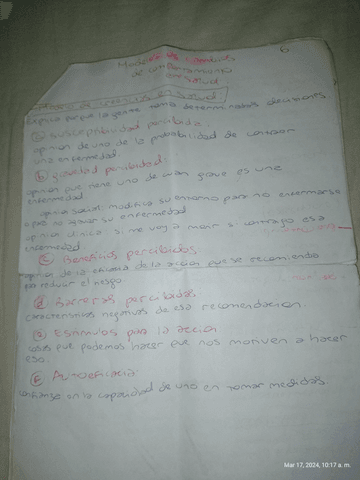 6
Modelos de cambios
de comportamiento
en salud.
Modelo de creencias en salud
Explica porque la gente toma determinadas decisiones
a) susceptibilidad percibida:
opinion de uno de la probabilidad de contraer
una enfermedad.
b) gravedad percibida:
opinion que tiene uno de cuan grave es una
enfermedad.
social: modifica su entorno para no enfermarse
o para no agravar su enfermedad
opinion clinica: si me voy a morir si contraigo esa
enfermedad
c) Beneficios percibidos
opinion de la eficacia de la accion que se recomienda
para reducir el riesgo
d) Barreras percibidas:
caracteristicas negativas de esa recomendacion.
e) Estimulos para la accion
cosas que podemos hacer que nos motiven a hacer
eso.
f) Autoeficacia:
confianza en la capacidad de uno en tomar medidas.
Mar 17, 2024, 10:17 a. m.